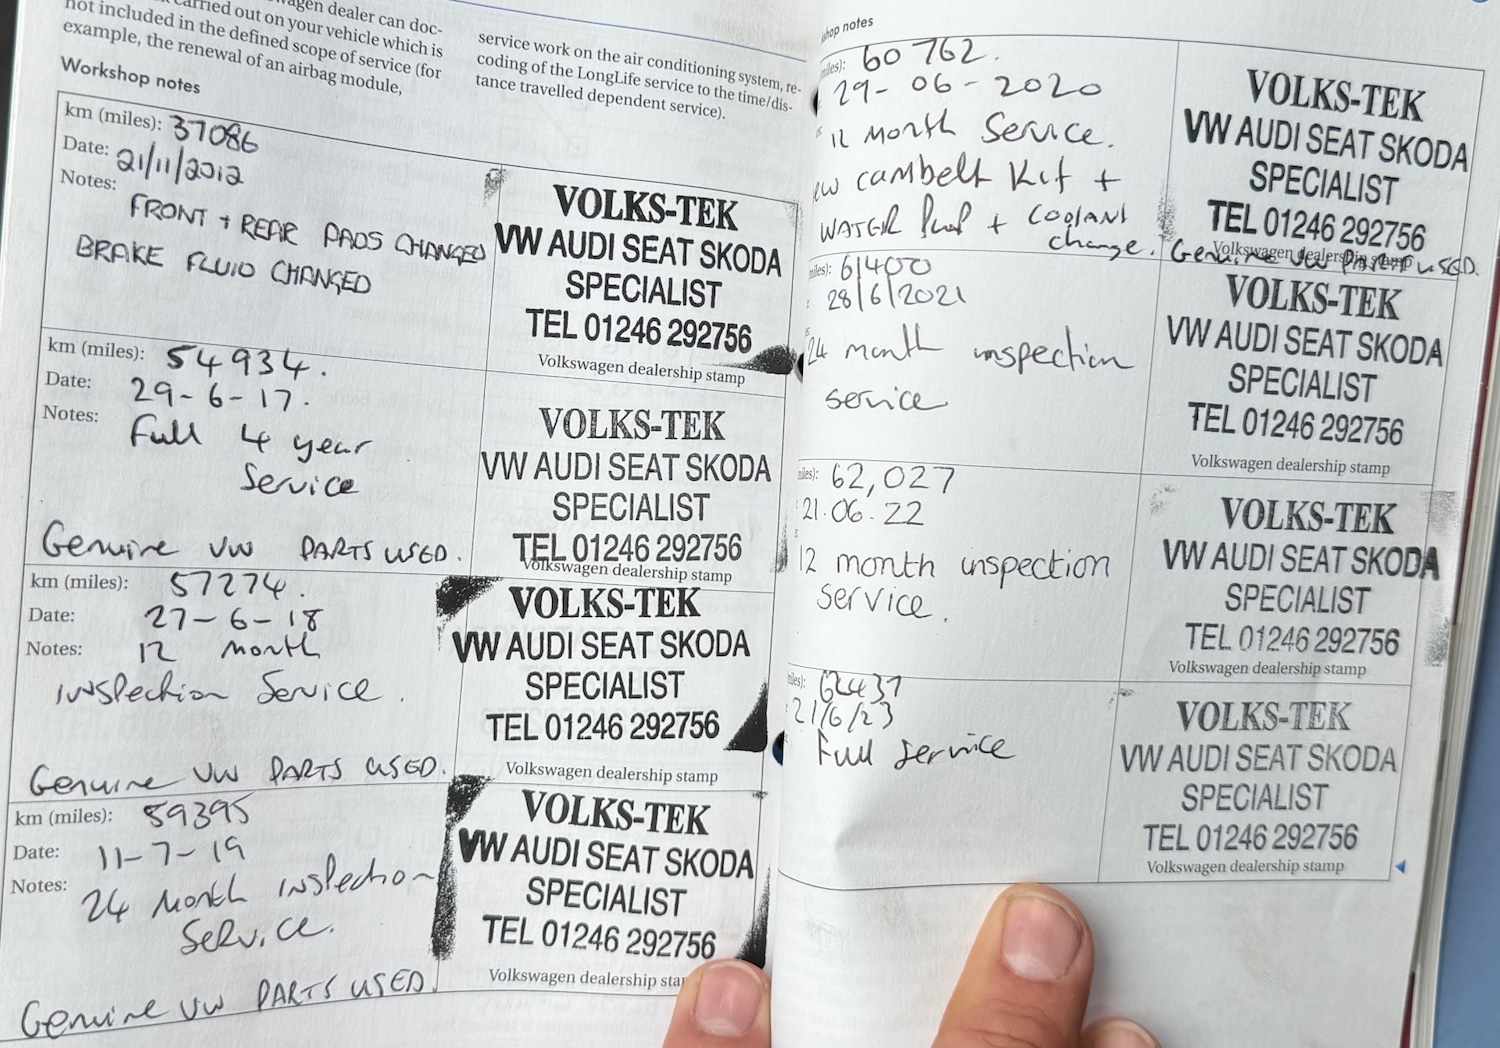 wagen dealer can doc-
carried out on your vehicle which is
not included in the defined scope of service (for
example, the renewal of an airbag module,
service work on the air conditioning system, re-
coding of the LongLife service to the time/dis-
tance travelled dependent service).
Workshop notes
km (miles): 37086
Date: 21/11/2012
Notes:
FRONT + REAR PADS CHANGED
BRAKE FLUID CHANGED
VOLKS-TEK
VW AUDI SEAT SKODA
SPECIALIST
TEL 01246 292756
Volkswagen dealership stamp
km (miles): 54934.
Date: 29-6-17.
Notes: Full 4 year
Service
Genuine VW PARTS USED.
VOLKS-TEK
VW AUDI SEAT SKODA
SPECIALIST
TEL 01246 292756
Volkswagen dealership stamp
km (miles): 57274.
Date: 27-6-18
Notes: 12 month
inspection Service.
Genuine VW PARTS USED.
VOLKS-TEK
VW AUDI SEAT SKODA
SPECIALIST
TEL 01246 292756
Volkswagen dealership stamp
km (miles): 59395
Date: 11-7-19
Notes: 24 Month inspection
Service.
Genuine VW PARTS USED.
VOLKS-TEK
VW AUDI SEAT SKODA
SPECIALIST
TEL 01246 292756
Volkswagen dealership sta
kshop notes
miles): 60762.
29-06-2020
12 Month Service.
ew cambelt Kit +
WATER Pump + Coolant
change. Genuine VW PARTS USED.
VOLKS-TEK
VW AUDI SEAT SKODA
SPECIALIST
TEL 01246 292756
Volkswagen dealership stamp
miles): 61400
28/6/2021
24 month inspection
service
VOLKS-TEK
VW AUDI SEAT SKODA
SPECIALIST
TEL 01246 292756
Volkswagen dealership stamp
miles): 62,027
21.06.22
12 month inspection
Service.
VOLKS-TEK
VW AUDI SEAT SKODA
SPECIALIST
TEL 01246 292756
Volkswagen dealership stamp
miles): 62437
21/6/23
Full service
VOLKS-TEK
VW AUDI SEAT SKODA
SPECIALIST
TEL 01246 292756
Volkswagen dealership stamp